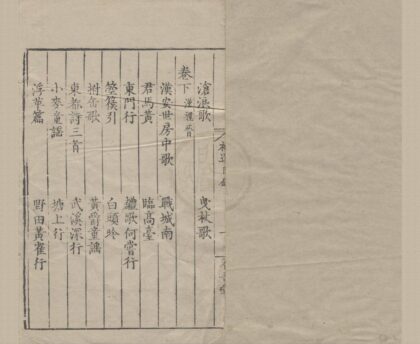 滄浪歌 曳杖歌
卷下 漢魏晉
漢安世房中歌 戰城南
君馬黃 臨高臺
東門行 豔歌何嘗行
箜篌引 白頭吟
拊缶歌 黃爵童謠
東都詩三首 武溪深行
小麥童謠 塘上行
浮萍篇 野田黃雀行